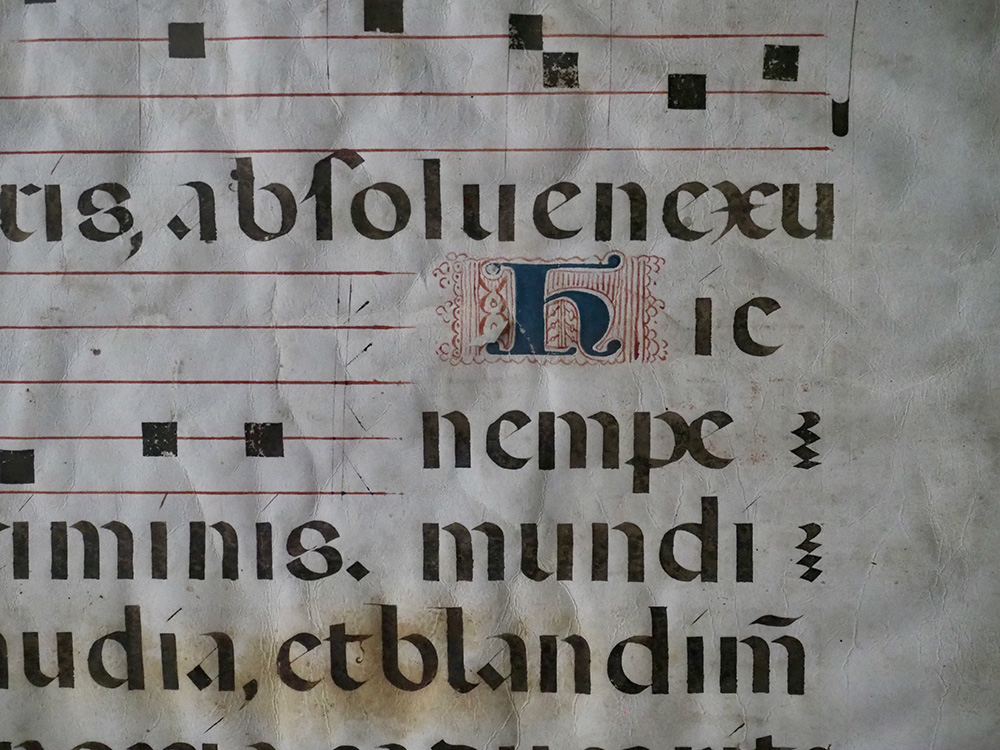 ris, abſoluenexu
Hic
nempe
riminis. mundi
udia, et blandim̃